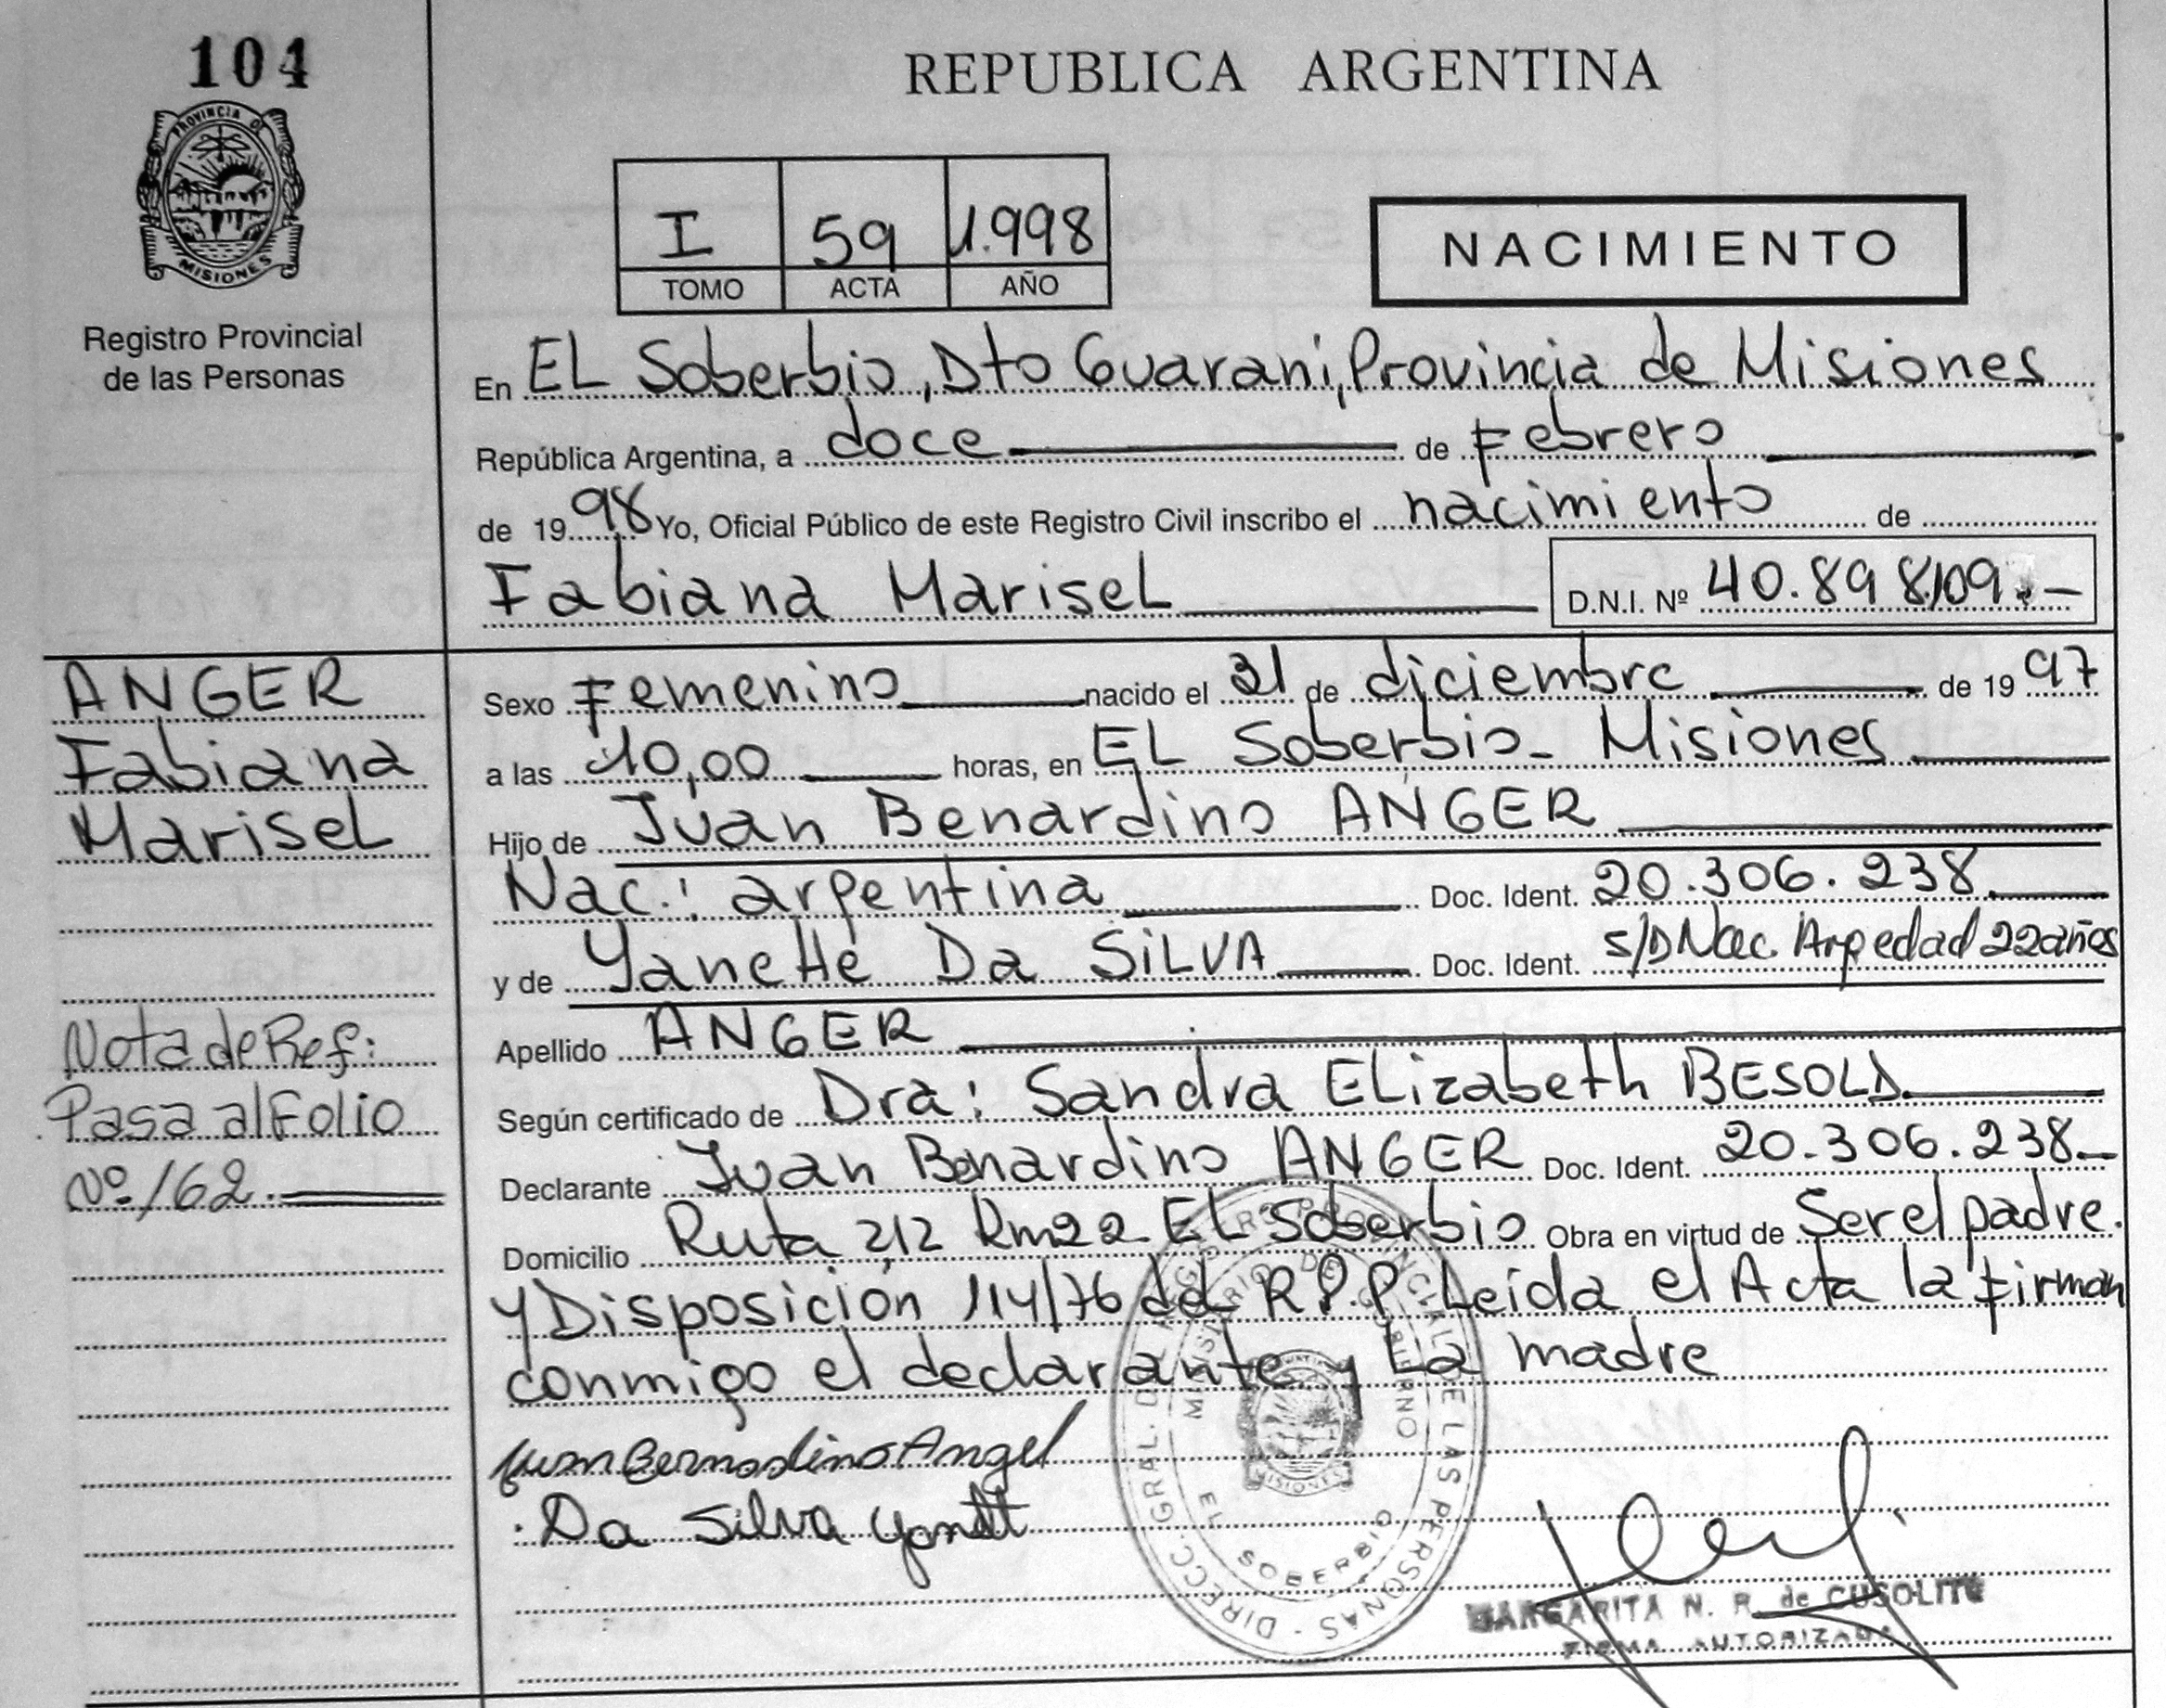 104
REPUBLICA ARGENTINA
PROVINCIA DE
MISIONES
I 59 1.998
TOMO ACTA AÑO
NACIMIENTO
Registro Provincial
de las Personas
En EL Soberbio, Dto Guarani, Provincia de Misiones
República Argentina, a doce de Febrero
de 1998 Yo, Oficial Público de este Registro Civil inscribo el nacimiento de
Fabiana MariseL D.N.I. Nº 40.898.109.-
ANGER
Fabiana
MariseL
Sexo Femenino nacido el 31 de diciembre de 1997
a las 10,00 horas, en EL Soberbio- Misiones
Hijo de Juan Benardino ANGER
Nac.: argentina Doc. Ident. 20.306.238.
y de Yanette Da SILVA Doc. Ident. s/D Nac. Arg edad 22 años
Apellido ANGER
Nota de Ref:
Pasa al Folio
Nº 162.
Según certificado de Dra: Sandra ELizabeth BESOLD.
Declarante Juan Benardino ANGER Doc. Ident. 20.306.238.-
Domicilio Ruta 212 Km 22 EL Soberbio Obra en virtud de Ser el padre.
y Disposición 114/76 del R.P.P. Leída el Acta la firman
conmigo el declarante y La madre
Juan Bernardino Angel
Da Silva
DIRECC. GRAL. DEL REGISTRO PROVINCIAL DE LAS PERSONAS -
MINISTERIO DE GOBIERNO
MISIONES
EL SOBERBIO
MARGARITA N. R. de CUSOLITO
FIRMA AUTORIZADA